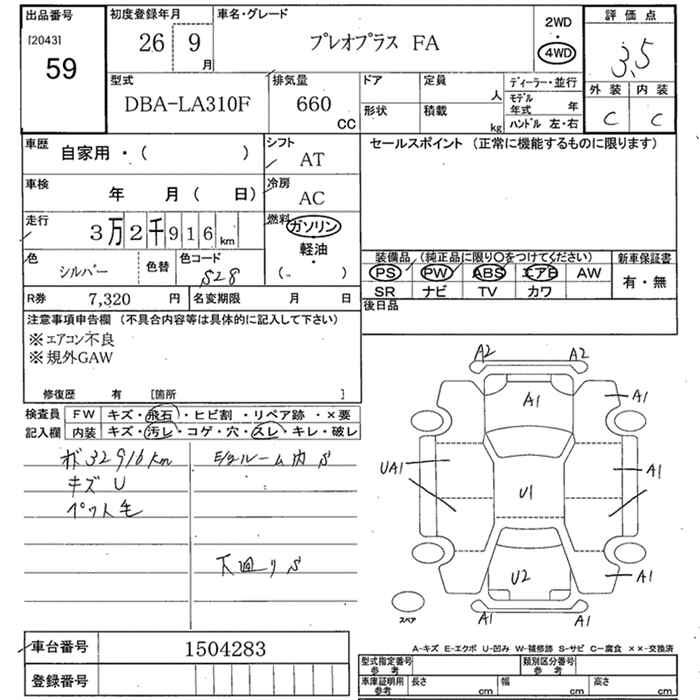 出品番号 初度登録年月 車名・グレード 2WD 評価点
[2043] 59 26 9 月 プレオプラス FA 4WD 3.5
型式 排気量 ドア 定員 人 ディーラー・並行 外装 内装
DBA-LA310F 660 CC 形状 積載 kg モデル年式 年 ハンドル 左・右 C C
車歴 自家用・( ) シフト AT セールスポイント (正常に機能するものに限ります)
車検 年 月( 日) 冷房 AC
走行 3万2千916km 燃料 ガソリン
軽油
・
色 シルバー 色替 色コード S28 ( )
装備品 (純正品に限り○をつけてください) 新車保証書
PS PW ABS エアB AW 有・無
SR ナビ TV カワ
R券 7,320 円 名変期限 月 日 後日品
注意事項申告欄 (不具合内容等は具体的に記入して下さい)
※エアコン不良
※規外GAW
修復歴 有 [箇所 ]
検査員 FW キズ・飛石・ヒビ割・リペア跡・×要
記入欄 内装 キズ・汚レ・コゲ・穴・スレ・キレ・破レ
32916km ルーム内 S
キズ U
ペット毛
下廻り S
A2 A2
A1 A1
UA1 A1
U1
U2 A1
スペア A1 A1
A-キズ E-エクボ U-凹み W-補修跡 S-サビ C-腐食 ××-交換済
車台番号 1504283
登録番号
型式指定番号 参考 類別区分番号 参考
車庫証明用 参考 長さ cm 幅 cm 高さ cm